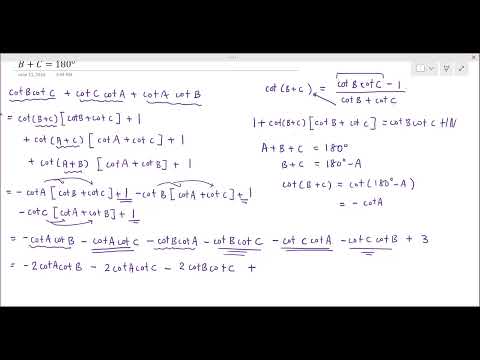 B + C = 180°
June 11, 2024 3:49 PM
cot B cot C + cot C cot A + cot A cot B
= cot(B+C) [cot B + cot C] + 1
+ cot(A+C) [cot A + cot C] + 1
+ cot(A+B) [cot A + cot B] + 1
= - cot A [cot B + cot C] + 1 - cot B [cot A + cot C] + 1
- cot C [cot A + cot B] + 1
= - cot A cot B - cot A cot C - cot B cot A - cot B cot C - cot C cot A - cot C cot B + 3
= - 2 cot A cot B - 2 cot A cot C - 2 cot B cot C +
cot(B+C) = cot B cot C - 1
cot B + cot C
1 + cot(B+C) [cot B + cot C] = cot B cot C
A + B + C = 180°
B + C = 180° - A
cot(B+C) = cot(180° - A)
= - cot A